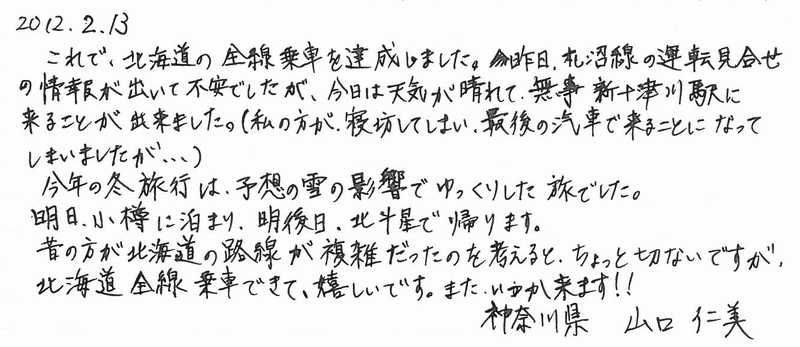 2012.2.13
これで、北海道の全線乗車を達成しました。昨日、札沼線の運転見合せ
の情報が出ていて不安でしたが、今日は天気が晴れて、無事新十津川駅に
来ることが出来ました。(私の方が、寝坊してしまい、最後の汽車で来ることになって
しまいましたが…)
今年の冬旅行は、予想の雪の影響でゆっくりした旅でした。
明日、小樽に泊まり、明後日、北斗星で帰ります。
昔の方が北海道の路線が複雑だったのを考えると、ちょっと切ないですが、
北海道全線乗車できて、嬉しいです。また、いつか来ます!!
神奈川県 山口 仁美